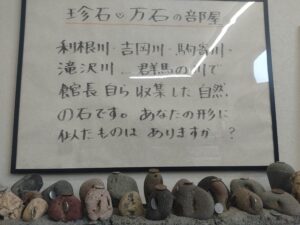 珍石♡万石の部屋
利根川・吉岡川・駒寄川・
滝沢川…群馬の川で
館長自ら収集した自然
の石です。あなたの形に
似たものはありますか…?